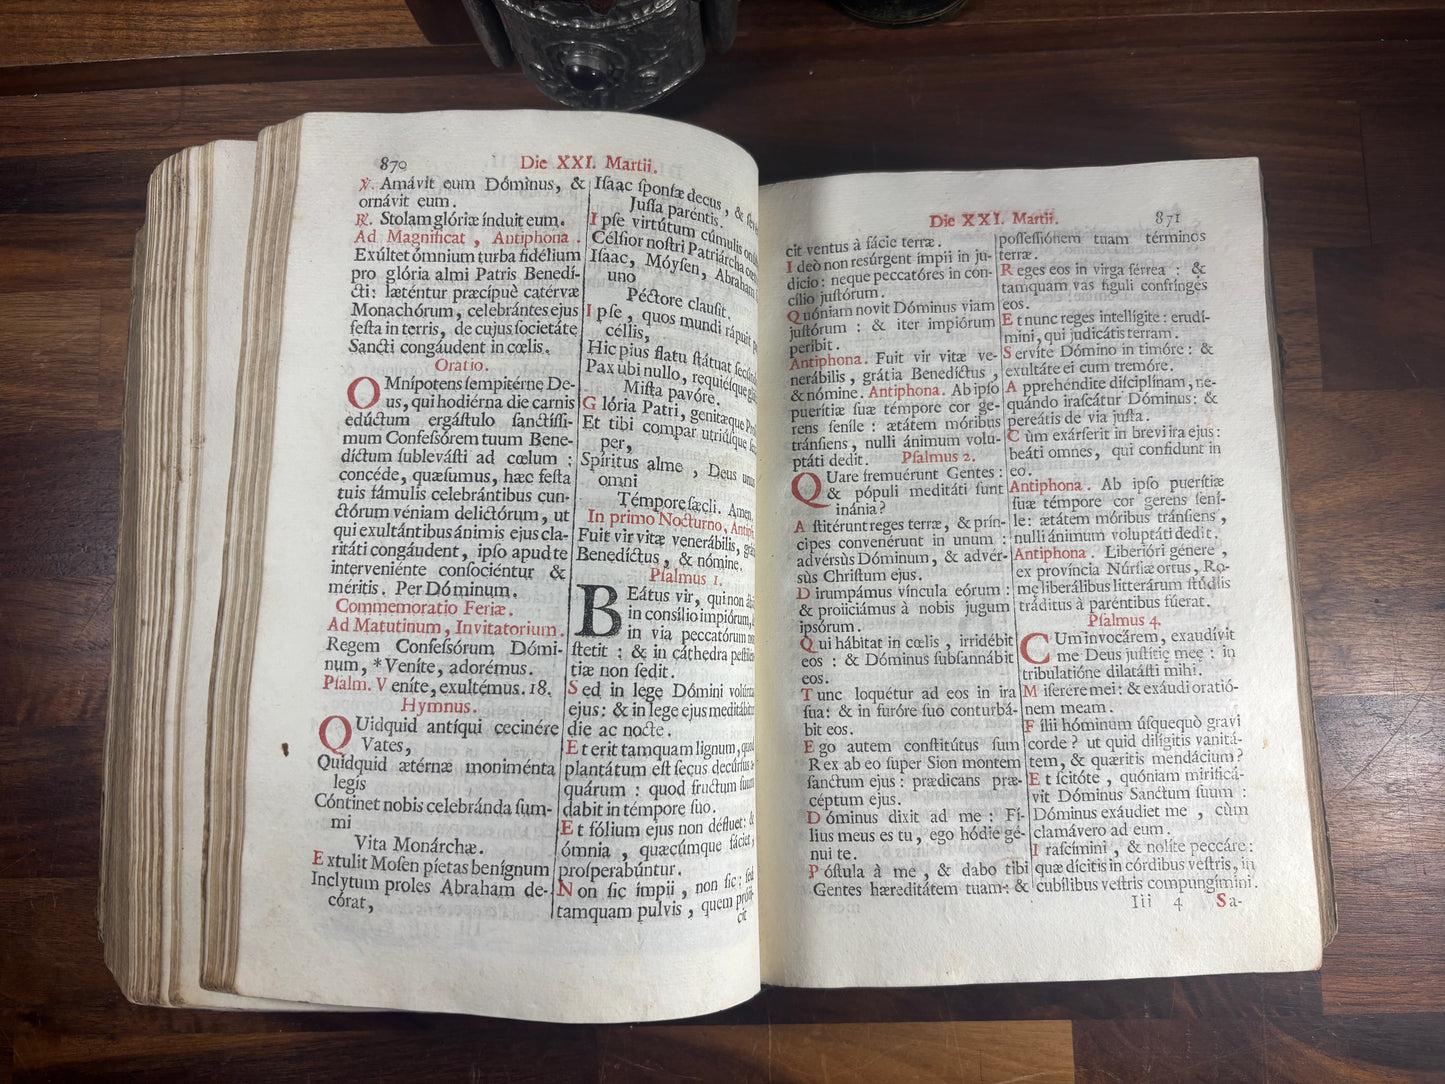 870
Die XXI. Martii.
℣. Amávit eum Dóminus, &
ornávit eum.
℟. Stolam glóriæ índuit eum.
Ad Magnificat, Antiphona.
Exúltet ómnium turba fidélium
pro glória almi Patris Benedí-
cti: læténtur præcípuè catérvæ
Monachórum, celebrántes ejus
feſta in terris, de cujus ſocietáte
Sancti congáudent in cœlis.
Oratio.
OMnípotens ſempitérne De-
us, qui hodiérna die carnis
edúctum ergáſtulo ſanctíſſi-
mum Confeſſórem tuum Bene-
díctum ſublevásti ad cœlum:
concéde, quæſumus, hæc feſta
tuis fámulis celebrántibus cun-
ctórum véniam delictórum, ut
qui exultántibus ánimis ejus cla-
ritáti congáudent, ipſo apud te
interveniénte conſociéntur &
méritis. Per Dóminum.
Commemoratio Feriæ.
Ad Matutinum, Invitatorium.
Regem Confeſſórum Dómi-
num, * Veníte, adorémus.
Pſalm. Veníte, exultémus. 18.
Hymnus.
QUidquid antíqui cecinére
Vates,
Quidquid ætérnæ moniménta
legis
Cóntinet nobis celebránda ſum-
mi
Vita Monárchæ.
Extulit Moſen píetas benígnum
Inclytum proles Abraham de-
córat,
Iſaac ſponſæ decus, &
Juſſa paréntis.
Ipſe virtútum cúmulis
Célſior noſtri Patriárcha
Iſaac, Móyſen, Abraham
uno
Péctore clauſit.
Ipſe, quos mundi rápuit
céllis,
Hic pius flatu ſtátuat
Pax ubi nullo, requiéſque
Miſta pavóre.
Glória Patri, genitæque
Et tibi compar utriúſque
per,
Spíritus alme, Deus unus
omni
Témpore ſæcli. Amen.
In primo Nocturno,
Fuit vir vitæ venerábilis,
Benedíctus, & nómine.
Pſalmus 1.
BEátus vir, qui non
in consílio impiórum,
in via peccatórum non
ſtetit: & in cáthedra
tiæ non ſedit.
Sed in lege Dómini volúntas
ejus: & in lege ejus meditábitur
die ac nocte.
Et erit tamquam lignum, quod
plantátum eſt ſecus decúrſus a-
quárum: quod fructum ſuum
dabit in témpore ſuo.
Et fólium ejus non défluet: &
ómnia, quæcúmque fáciet,
proſperabúntur.
Non ſic ímpii, non ſic: ſed
tamquam pulvis, quem próji-
cit
Die XXI. Martii.
871
cit ventus à fácie terræ.
Ideò non reſúrgent ímpii in ju-
dício: neque peccatóres in con-
cílio juſtórum.
Quóniam novit Dóminus viam
juſtórum: & iter impiórum
períbit.
Antiphona. Fuit vir vitæ ve-
nerábilis, grátia Benedíctus,
& nómine. Antiphona. Ab ipſo
puerítiæ ſuæ témpore cor ge-
rens ſeníle: ætátem móribus
tránſiens, nulli ánimum volu-
ptáti dedit. Pſalmus 2.
QUare fremuérunt Gentes:
& pópuli meditáti ſunt
inánia?
Aſtitérunt reges terræ, & prín-
cipes convenérunt in unum:
advérsùs Dóminum, & advér-
sùs Chriſtum ejus.
Dirumpámus víncula eórum:
& proiiciámus à nobis jugum
ipsórum.
Qui hábitat in cœlis, irridébit
eos: & Dóminus ſubſannábit
eos.
Tunc loquétur ad eos in ira
ſua: & in furóre ſuo conturbá-
bit eos.
Ego autem conſtitútus ſum
Rex ab eo ſuper Sion montem
ſanctum ejus: prædicans præ-
céptum ejus.
Dóminus dixit ad me: Fí-
lius meus es tu, ego hódie gé-
nui te.
Póſtula à me, & dabo tibi
Gentes hæreditátem tuam: &
poſſeſſiónem tuam términos
terræ.
Reges eos in virga férrea: &
tamquam vas fíguli confrínges
eos.
Et nunc reges intellígite: erudí-
mini, qui judicátis terram.
Servíte Dómino in timóre: &
exultáte ei cum tremóre.
Apprehéndite diſciplínam, ne-
quándo iraſcátur Dóminus: &
pereátis de via juſta.
Cùm exárſerit in brevi ira ejus:
beáti omnes, qui confídunt in
eo.
Antiphona. Ab ipſo puerítiæ
ſuæ témpore cor gerens ſení-
le: ætátem móribus tránſiens,
nulli ánimum voluptáti dedit.
Antiphona. Liberióri génere,
ex província Núrſiæ ortus, Ro-
mę liberálibus litterárum ſtúdiis
tráditus à paréntibus fúerat.
Pſalmus 4.
CUm invocárem, exaudívit
me Deus juſtítię meę: in
tribulatióne dilatáſti mihi.
Miſerére mei: & exáudi oratió-
nem meam.
Fílii hóminum úſquequò gravi
corde? ut quid dilígitis vanitá-
tem, & quæritis mendácium?
Et ſcitóte, quóniam mirificá-
vit Dóminus Sanctum ſuum:
Dóminus exáudiet me, cùm
clamávero ad eum.
Iraſcímini, & nolíte peccáre:
quæ dícitis in córdibus veſtris, in
cubílibus veſtris compungímini.
Iii 4 Sa-